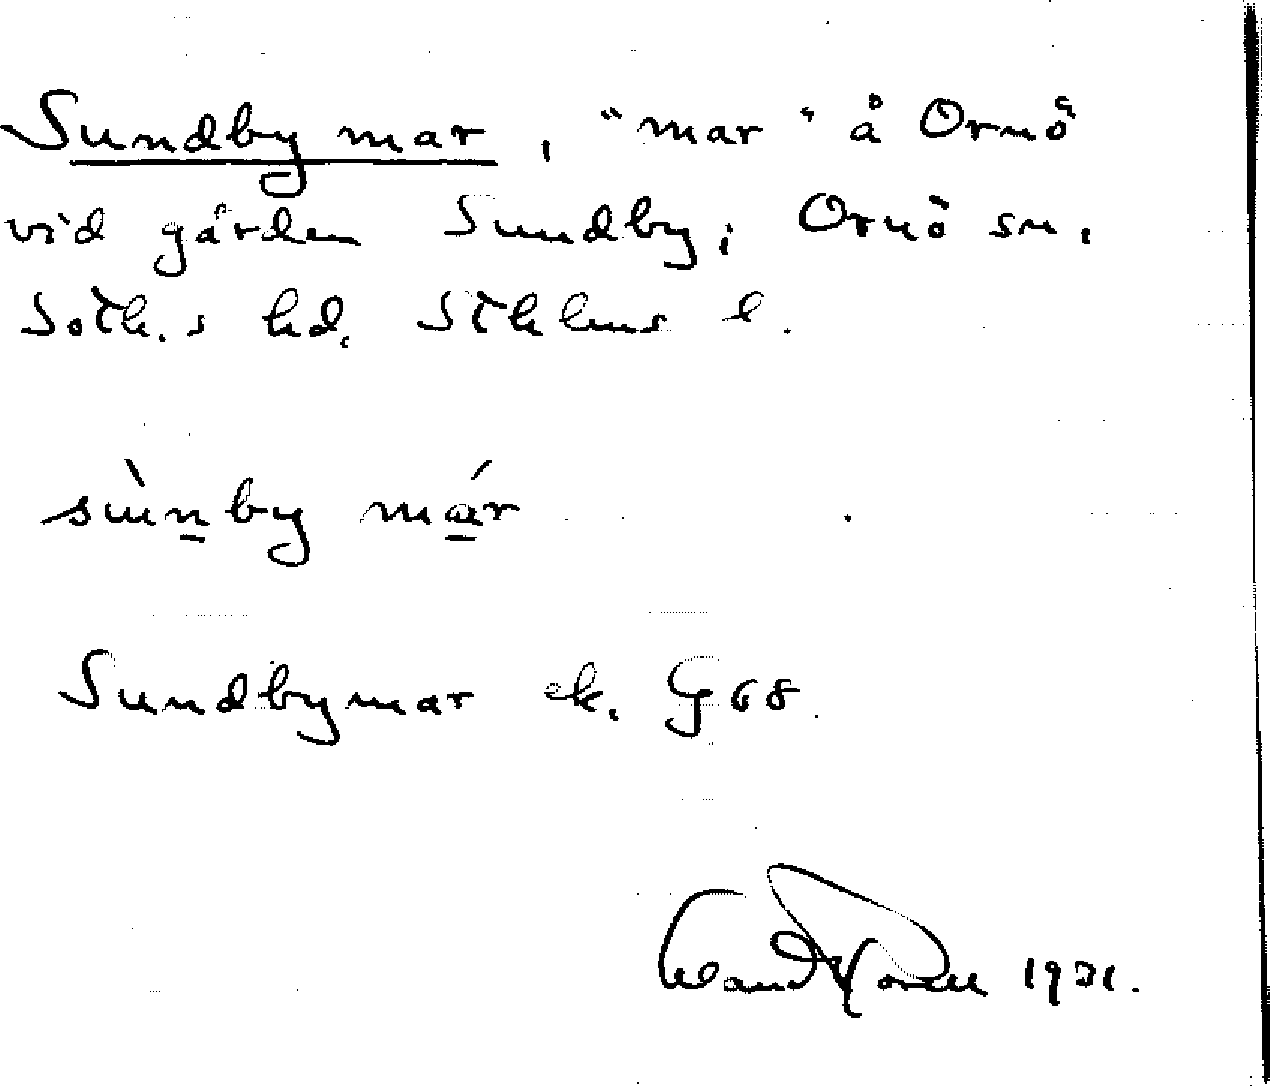 Sundby mar, "mar" å Ornö
vid gården Sundby; Ornö sn.
Soth.s hd. Sthlms l.
sùnby már
Sundbymar ek. G 68.
1921.